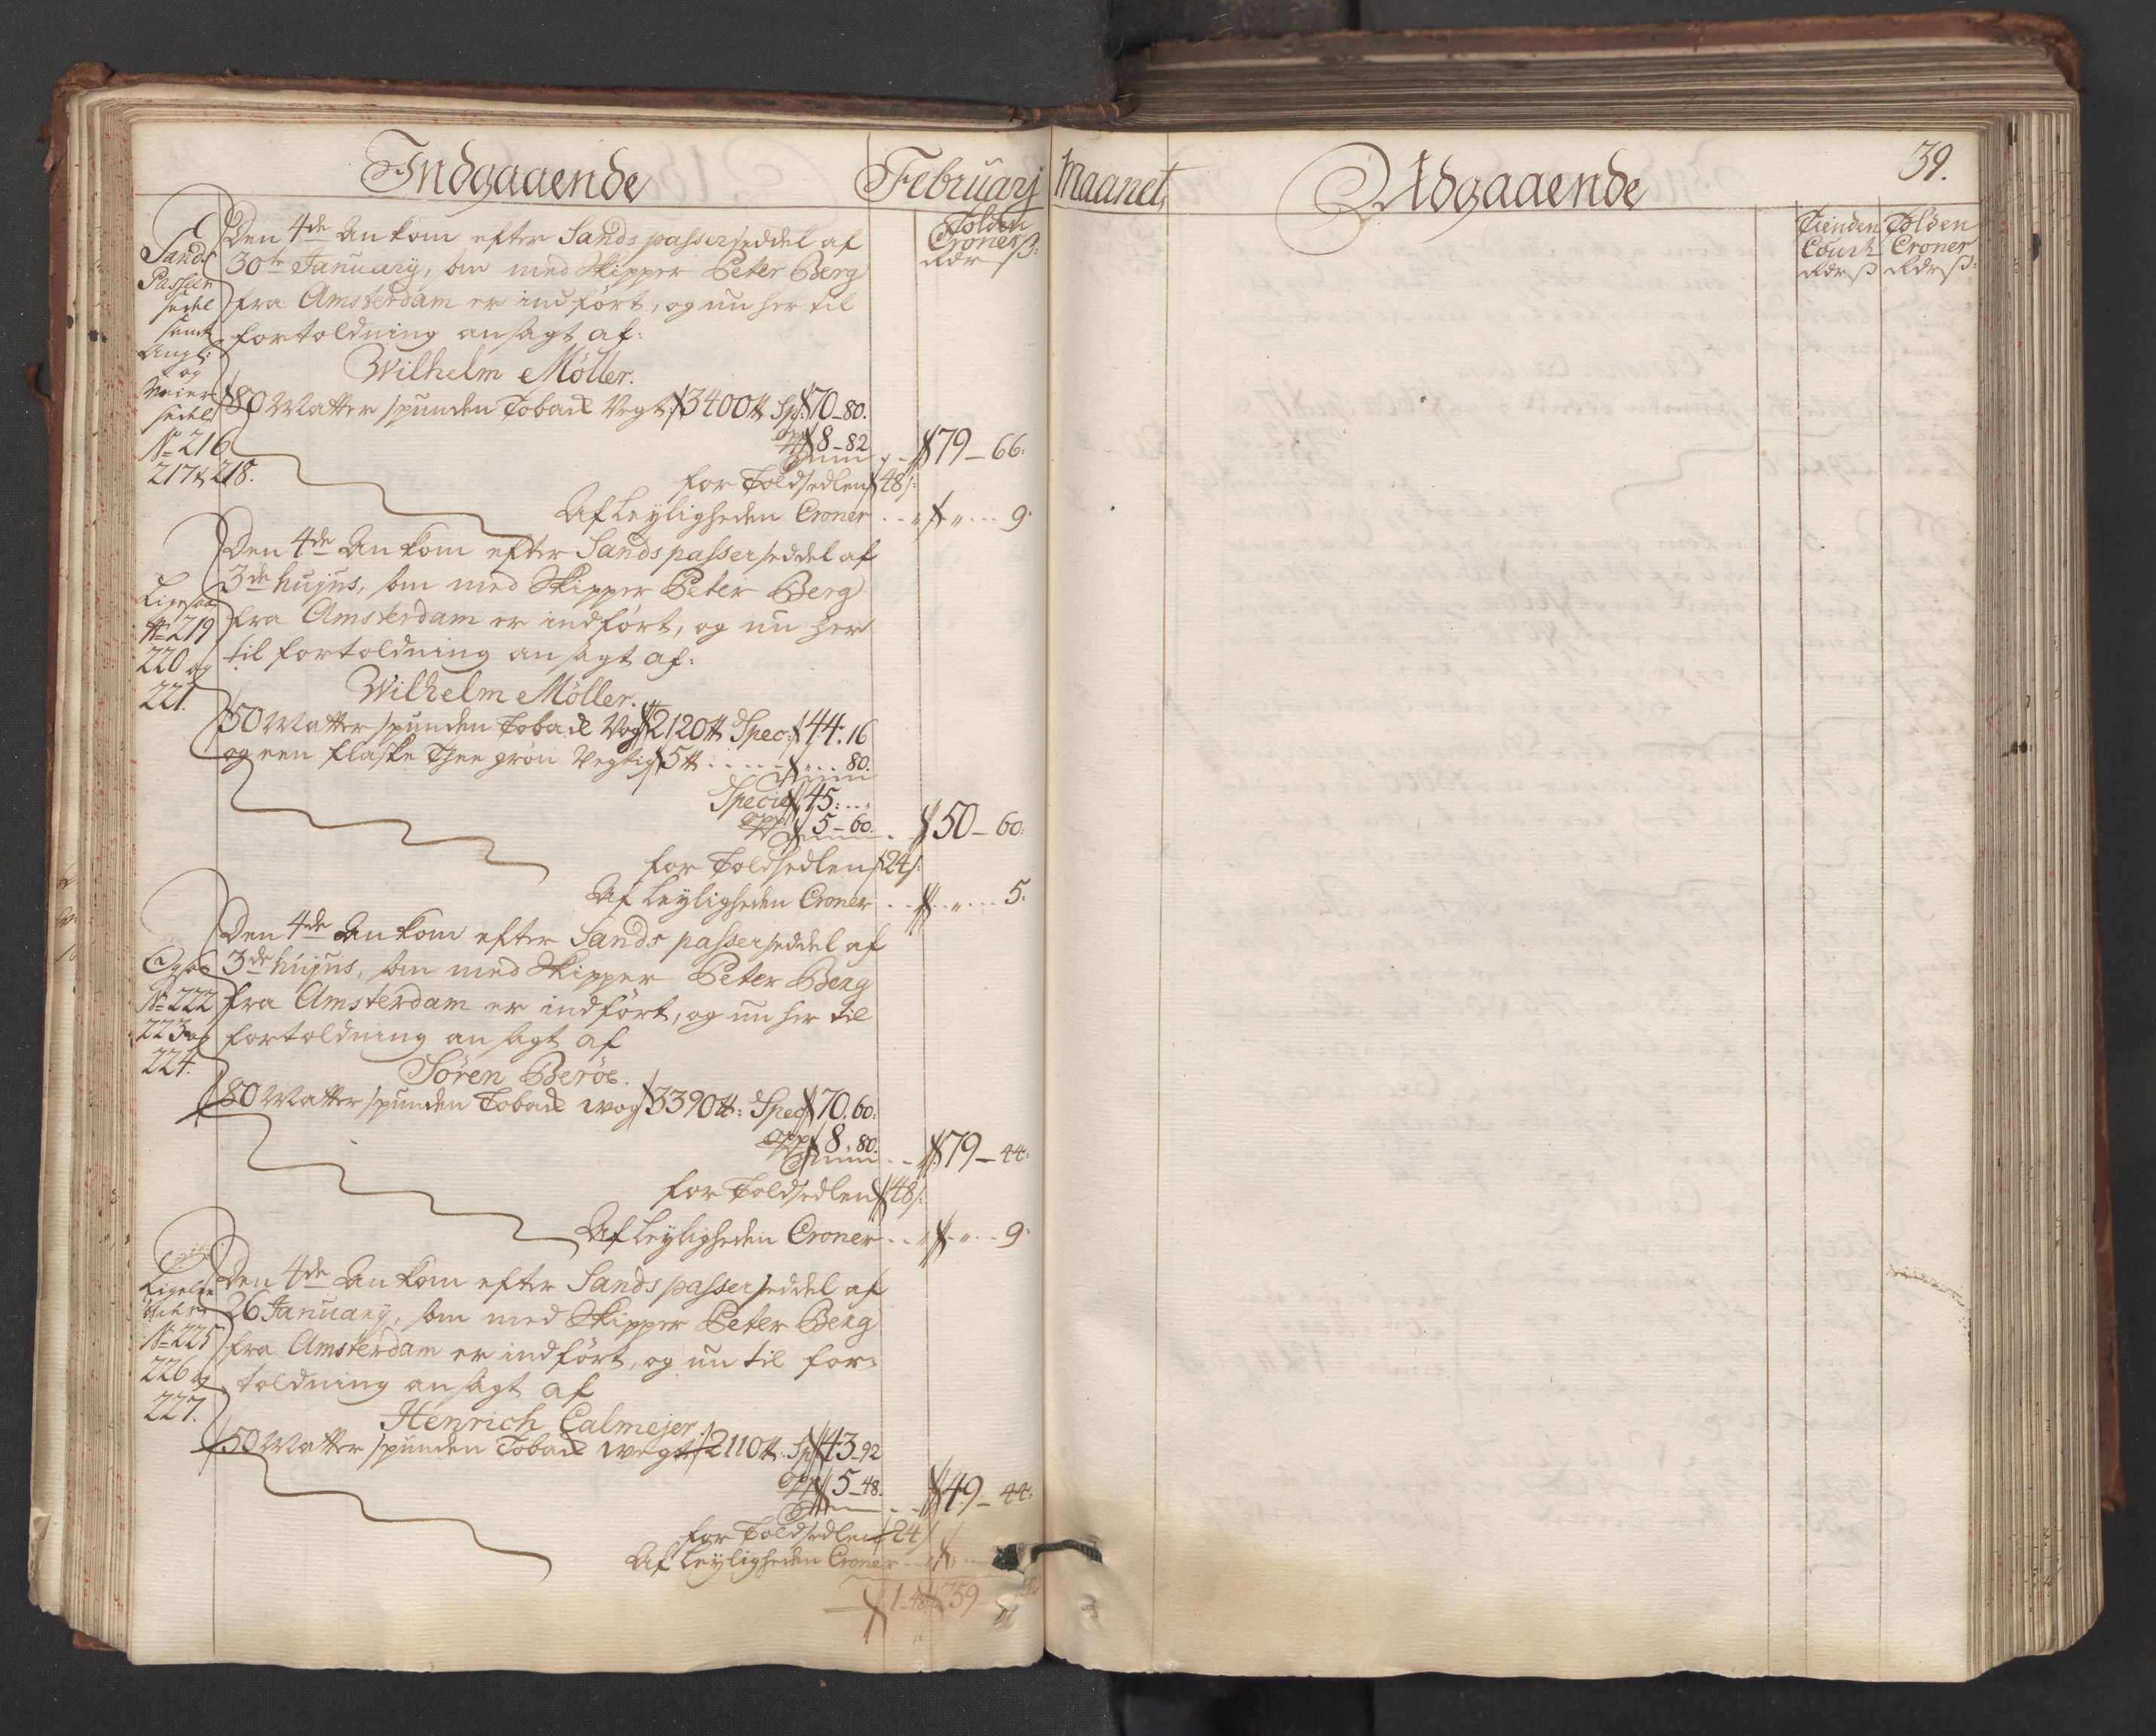 Indgaaende
Februarj
Maanet,
Udgaaende
39.
Tolden
Croner
Rdr ß:
Tienden
Court
Rdr ß
Tolden
Croner
Rdr ß:
Sands
Passeer
sedel
samt
Angl:
og
Veier
sedel
No 216
217 & 218.
Den 4de Ankom efter Sands passerseddel af
30te January, som med Skipper Peter Berg
fra Amsterdam er indført, og nu her til
fortoldning ansagt af:
Wilhelm Möller.
80 Matter spunden Toback Vegt: 3400 ℔ Sp: 70-80.
opp 8-82
Summ 79-66:
for Toldsedlen 48 ß:
Af Leyligheden Croner .. " .. " ... 9.
Ligesaa
No 219
220 og
221.
Den 4de Ankom efter Sands passerseddel af
3de hujus, som med Skipper Peter Berg
fra Amsterdam er indført, og nu her
til fortoldning ansagt af:
Wilhelm Möller.
50 Matter spunden Toback Vog 2120 ℔ Spec: 44. 16
og een flaske Thee grøn Vegtig 5 ℔ ..... " ... 80.
Summ
Specie 45: ..
opp 5-60.
Summ .. 50-60:
for Toldsedlen 24 ß:
Af Leyligheden Croner .. " ... 5:
Ogsaa
No 222
223 og
224.
Den 4de Ankom efter Sands passerseddel af
3de hujus, som med Skipper Peter Berg
fra Amsterdam er indført, og nu her til
fortoldning ansagt af
Søren Berøe.
80 Matter spunden Toback wog 3390 ℔: Spec 70. 60:
opp 8. 80.
Summ .. 79-44:
for Toldsedlen 48 ß:
Af Leyligheden Croner .. " .. " .. 9.
No 225
226 og
227.
Den 4de Ankom efter Sands passerseddel af
26 January, som med Skipper Peter Berg
fra Amsterdam er indført, og nu til for:
toldning ansagt af
Henrich Calmejer.
50 Matter spunden Toback wegt 2110 ℔. Sp 43-92
opp 5-48.
Summ .. 49-44:
for Toldsedlen 24 ß
Af Leyligheden Croner .. "
1-48 259